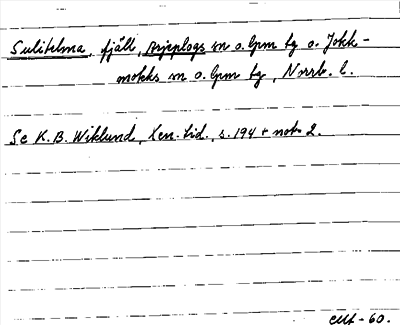 Sulitelma, fjäll, Arjeplogs sn o. lpm tg o. Jokk-
mokks sn o. lpm tg, Norrb. l.
Se K.B. Wiklund, Len. tid., s. 194 + not 2.
-60.